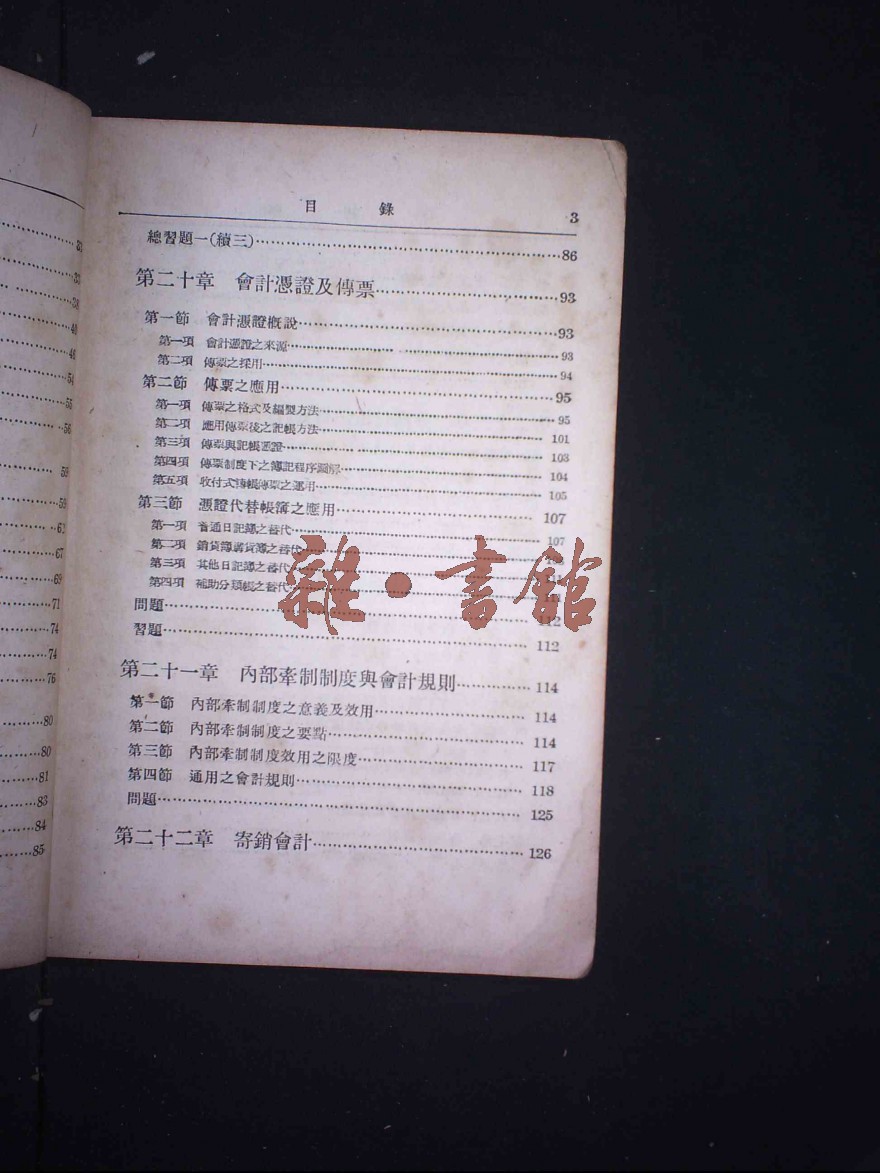 33
38
40
46
54
55
56
59
59
62
67
69
71
74
74
76
80
80
81
83
84
85
目 錄 3
總習題一(續三)…………86
第二十章 會計憑證及傳票…………93
第一節 會計憑證概說…………93
第一項 會計憑證之來源…………93
第二項 傳票之採用…………94
第二節 傳票之應用…………95
第一項 傳票之格式及編製方法…………95
第二項 應用傳票後之記帳方法…………101
第三項 傳票與記帳憑證…………103
第四項 傳票制度下之簿記程序圖解…………104
第五項 收付式轉帳傳票之運用…………105
第三節 憑證代替帳簿之應用…………107
第一項 普通日記簿之替代…………107
第二項 銷貨簿購貨簿之替代…………
第三項 其他日記簿之替代…………
第四項 補助分類帳之替代…………
問題…………112
習題…………112
第二十一章 內部牽制制度與會計規則…………114
第一節 內部牽制制度之意義及效用…………114
第二節 內部牽制制度之要點…………114
第三節 內部牽制制度效用之限度…………117
第四節 通用之會計規則…………118
問題…………125
第二十二章 寄銷會計…………126
雜·書館